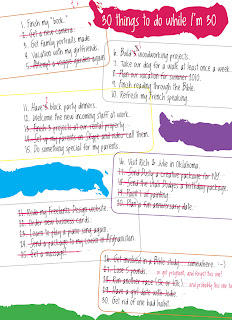 30 things to do while I'm 30
1. Finish my "book."
2. Get a new camera.
3. Get family portraits made.
4. Vacation with my girlfriends.
5. Attempt a veggie garden again.
6. Build 3 woodworking projects.
7. Take our dog for a walk at least once a week.
8. Plan our vacation for summer 2010.
9. Finish reading through the Bible.
10. Refresh my French speaking.
11. Have 3 block party dinners.
12. Welcome the new incoming staff at work.
13. Finish 3 projects at our rental property.
14. Set up my parents on Skype and video call them.
15. Do something special for my parents.
16. Visit Rich & Julie in Oklahoma.
17. Send Dusty a creative package for
18. Send the Utah Studges a birthday package.
19. Paint a painting.
20. Plan a fun anniversary date.
21. Redo my freelance design website.
22. Order new business cards.
23. Learn to play a piano song again.
24. Send a package to my cousin in Afghanistan.
25. Get a massage.
26. Get involved in a Bible study... somewhere. :-)
27. Lose 5 pounds. or get pregnant, and forget this one!
28. Run another race (5k or 10k). and probably this one to
29. Have a girl date with Jodie.
30. Get rid of one bad habit!